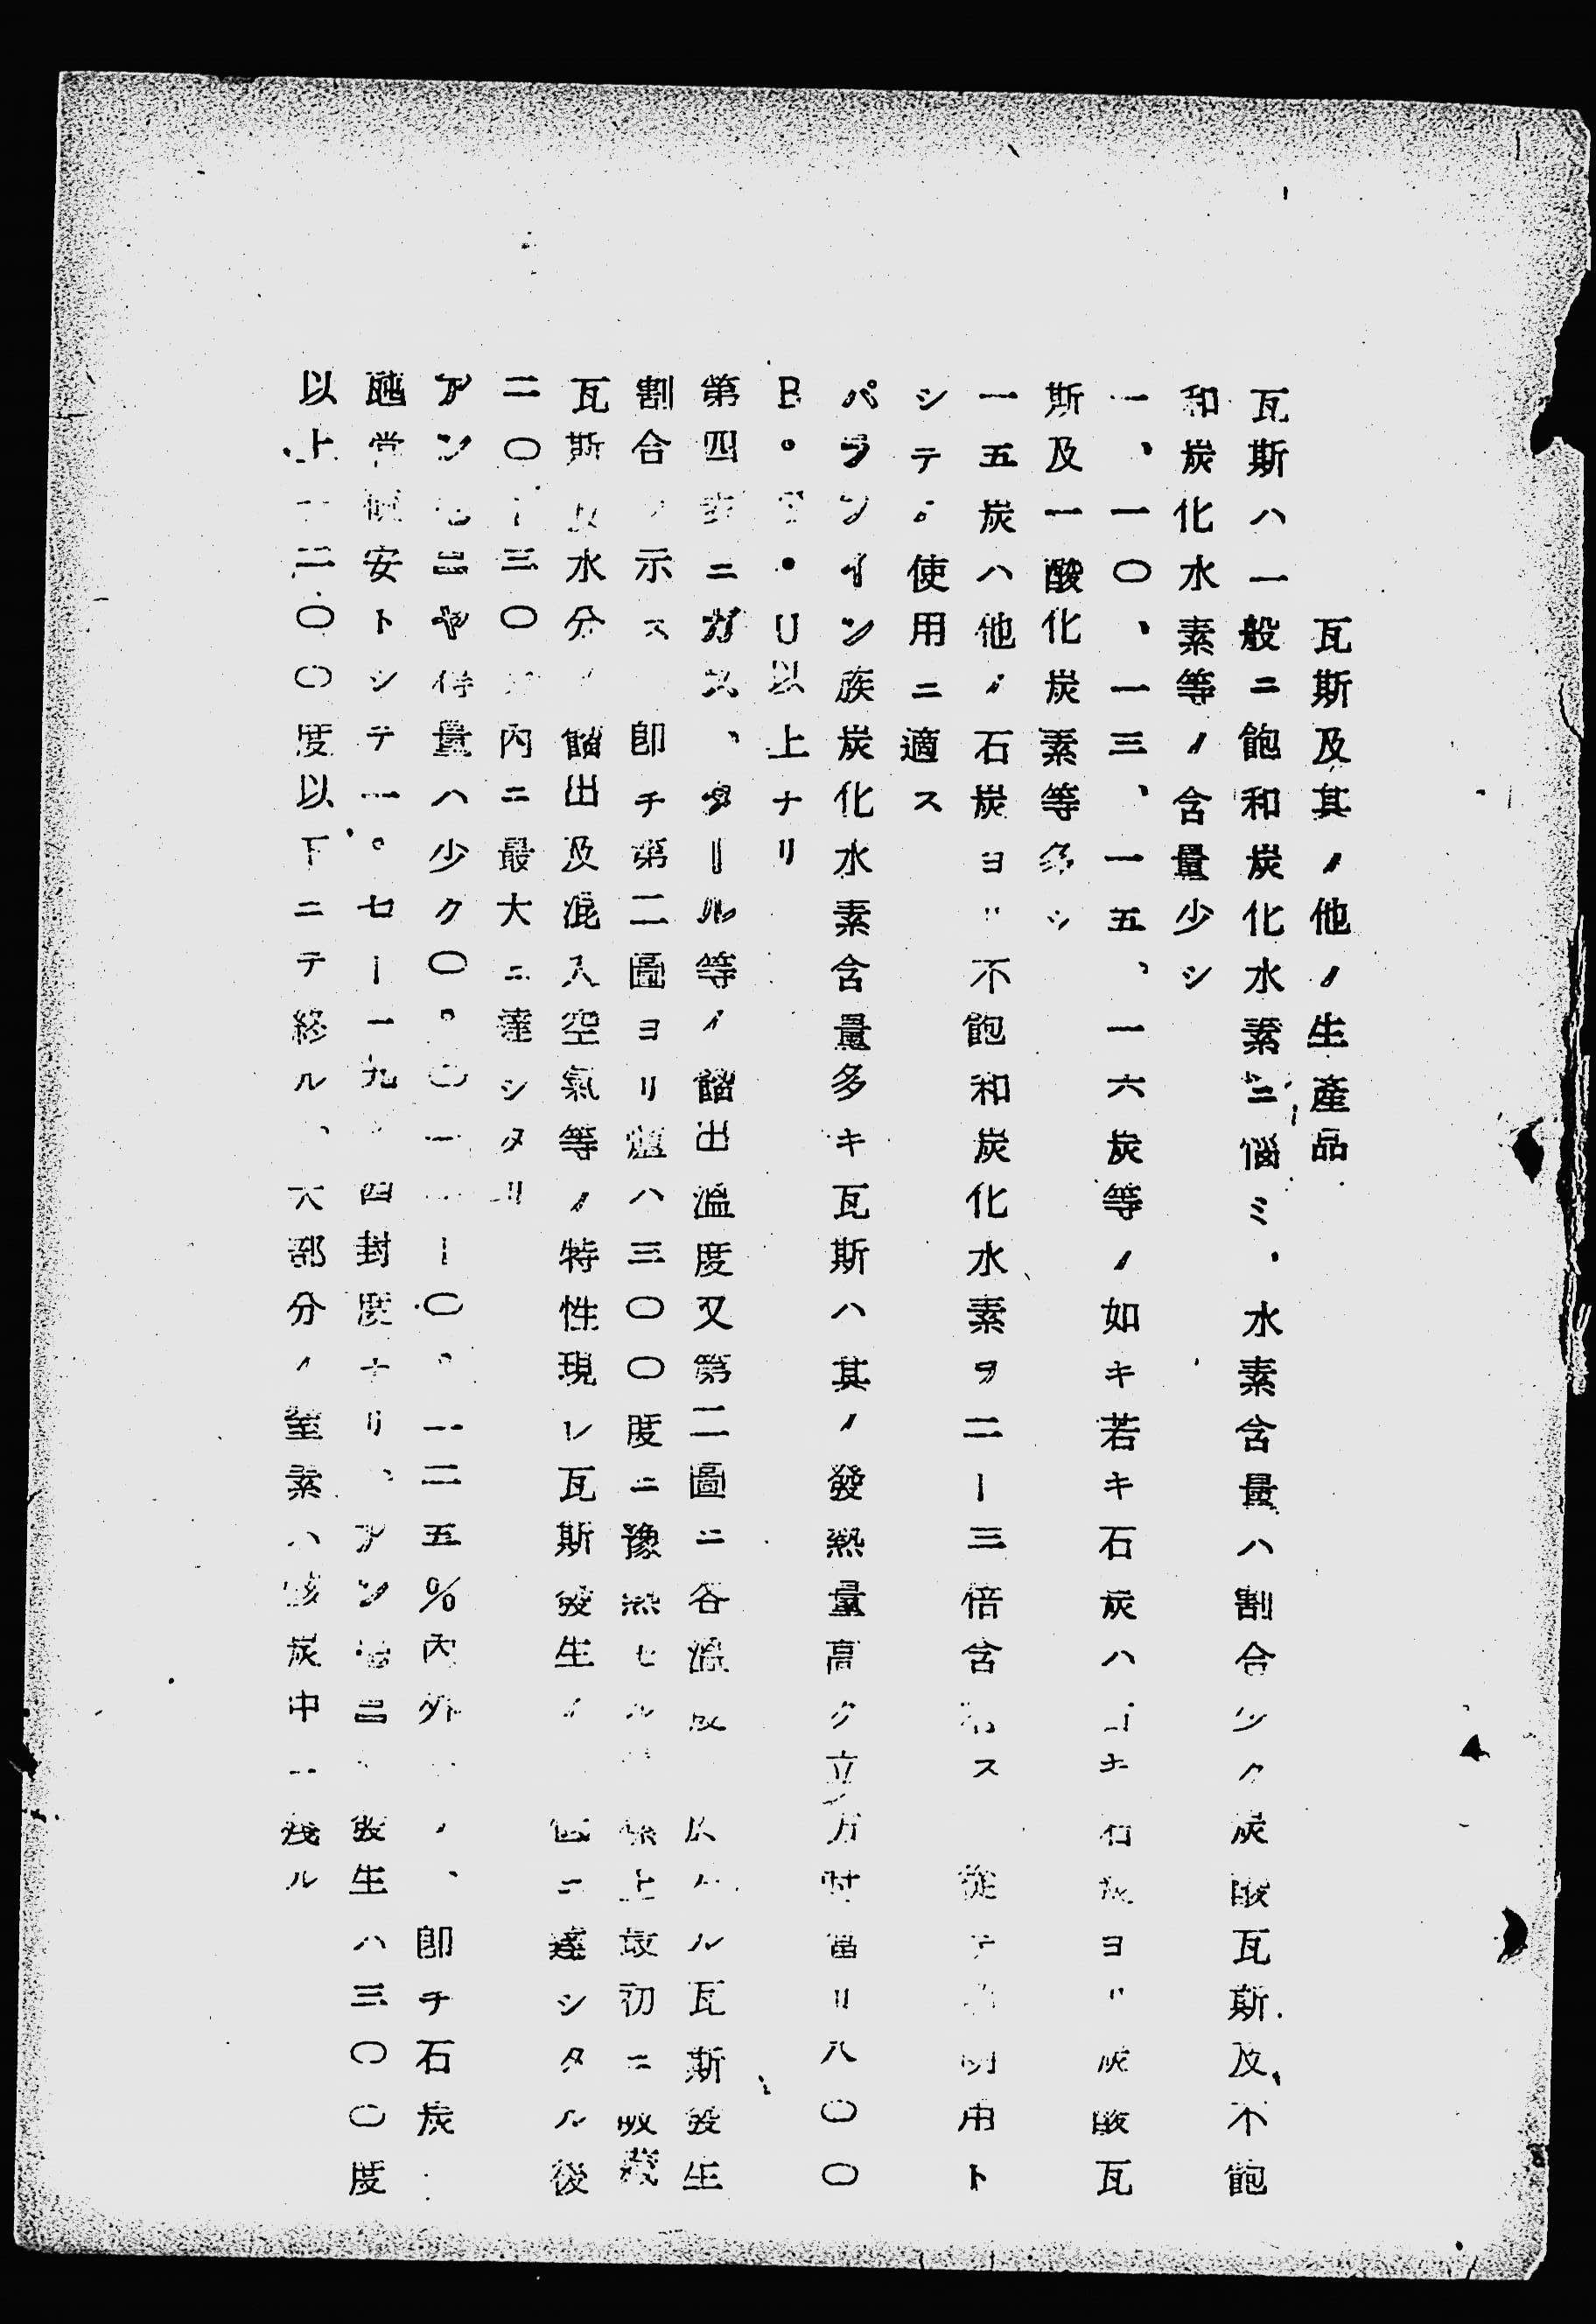 瓦斯及其ノ他ノ生產品
瓦斯ハ一般ニ飽和炭化水素ニ惱ミ、水素含量ハ割合少ク炭酸瓦斯及不飽
和炭化水素等ノ含量少シ
一、一〇、一三、一五、一六炭等ノ如キ若キ石炭ハ古キ石炭ヨリ炭酸瓦
斯及一酸化炭素等多シ
一五炭ハ他ノ石炭ヨリ不飽和炭化水素ヲ二ー三倍含有ス 從テ 用ト
シテ 使用ニ適ス
パラフイン族炭化水素含量多キ瓦斯ハ其ノ發熱量高ク立方呎當リ八〇〇
B・T・U以上ナリ
第四表ニガス、タール等ノ餾出溫度又第二圖ニ各溫度ニ於ケル瓦斯發生
割合ヲ示ス 卽チ第二圖ヨリ爐ハ三〇〇度ニ豫熱セル 上最初ニ吸藏
瓦斯及水分ノ餾出及混入空氣等ノ特性現レ瓦斯發生ノ ニ達シタル後
二〇ー三〇分內ニ最大ニ達シタリ
アンモニヤ得量ハ少ク〇・〇一 ー〇・一二五%內外 、卽チ石炭
瓲當硫安トシテ一・七ー一九・四封度ナリ、アンモニヤ發生ハ三〇〇度
以上一二〇〇度以下ニテ終ル、大部分ノ窒素ハ骸炭中ニ殘ル